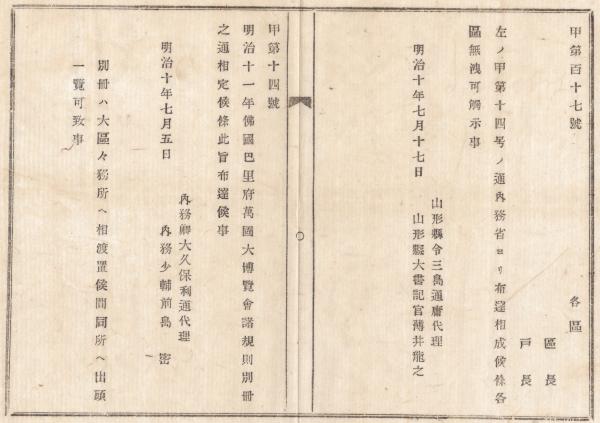 甲第百十七號
各區
區長
戸長
左ノ甲第十四号ノ通內務省ヨリ布達相成候條各
區無洩可觸示事
明治十年七月十七日
山形縣令三島通庸代理
山形縣大書記官薄井龍之
甲第十四號
明治十一年佛國巴里府萬國大博覽會諸規則別冊
之通相定候條此旨布達候事
明治十年七月五日
內務卿大久保利通代理
內務少輔前島密
別冊ハ大區々務所ヘ相渡置候間同所ヘ出頭
一覽可致事